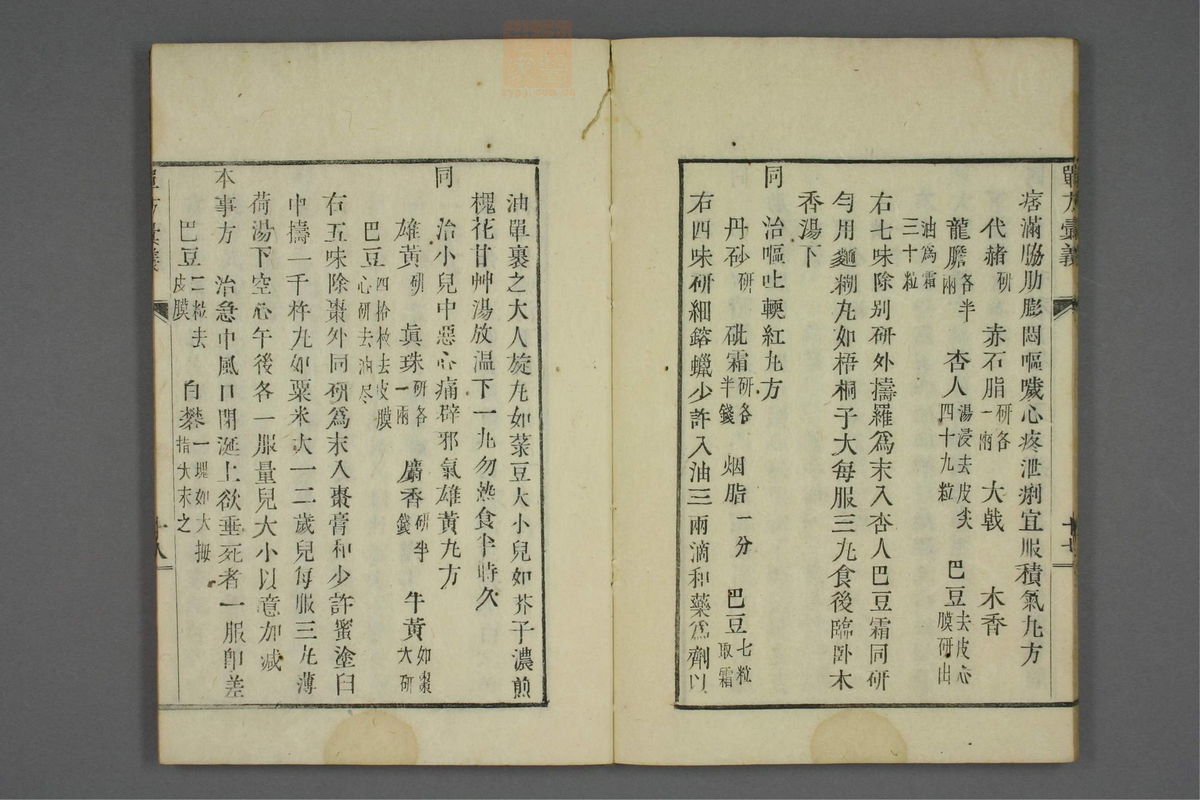 單方彙義
十七
痞滿脇肋膨悶嘔噦心疼泄痢宜服積氣丸方
代赭研 赤石脂研各一兩 大戟 木香
龍膽各半兩 杏人湯浸去皮尖四十九粒 巴豆去皮心膜研出
油爲霜三十粒
右七味除別研外擣羅爲末入杏人巴豆霜同研
勻用麵糊丸如梧桐子大每服三丸食後臨卧木
香湯下
同 治嘔吐輭紅丸方
丹砂研 砒霜研各半錢 烟脂一分 巴豆七粒取霜
右四味研細鎔蠟少許入油三兩滴和藥爲劑以
油單裹之大人旋丸如菉豆大小兒如芥子濃煎
槐花甘艸湯放温下一丸勿熱食半時久
同 治小兒中惡心痛辟邪氣雄黃丸方
雄黃研 眞珠研各一兩 麝香研半錢 牛黃如棗大研
巴豆四拾枚去皮膜心研去油尽
右五味除棗外同研爲末入棗膏和少許蜜塗臼
中擣一千杵丸如粟米大一二歲兒每服三丸薄
荷湯下空心午後各一服量兒大小以意加减
本事方 治急中風口閉涎上欲垂死者一服卽差
巴豆二粒去皮膜 白礬一塊如大拇指大末之
十八